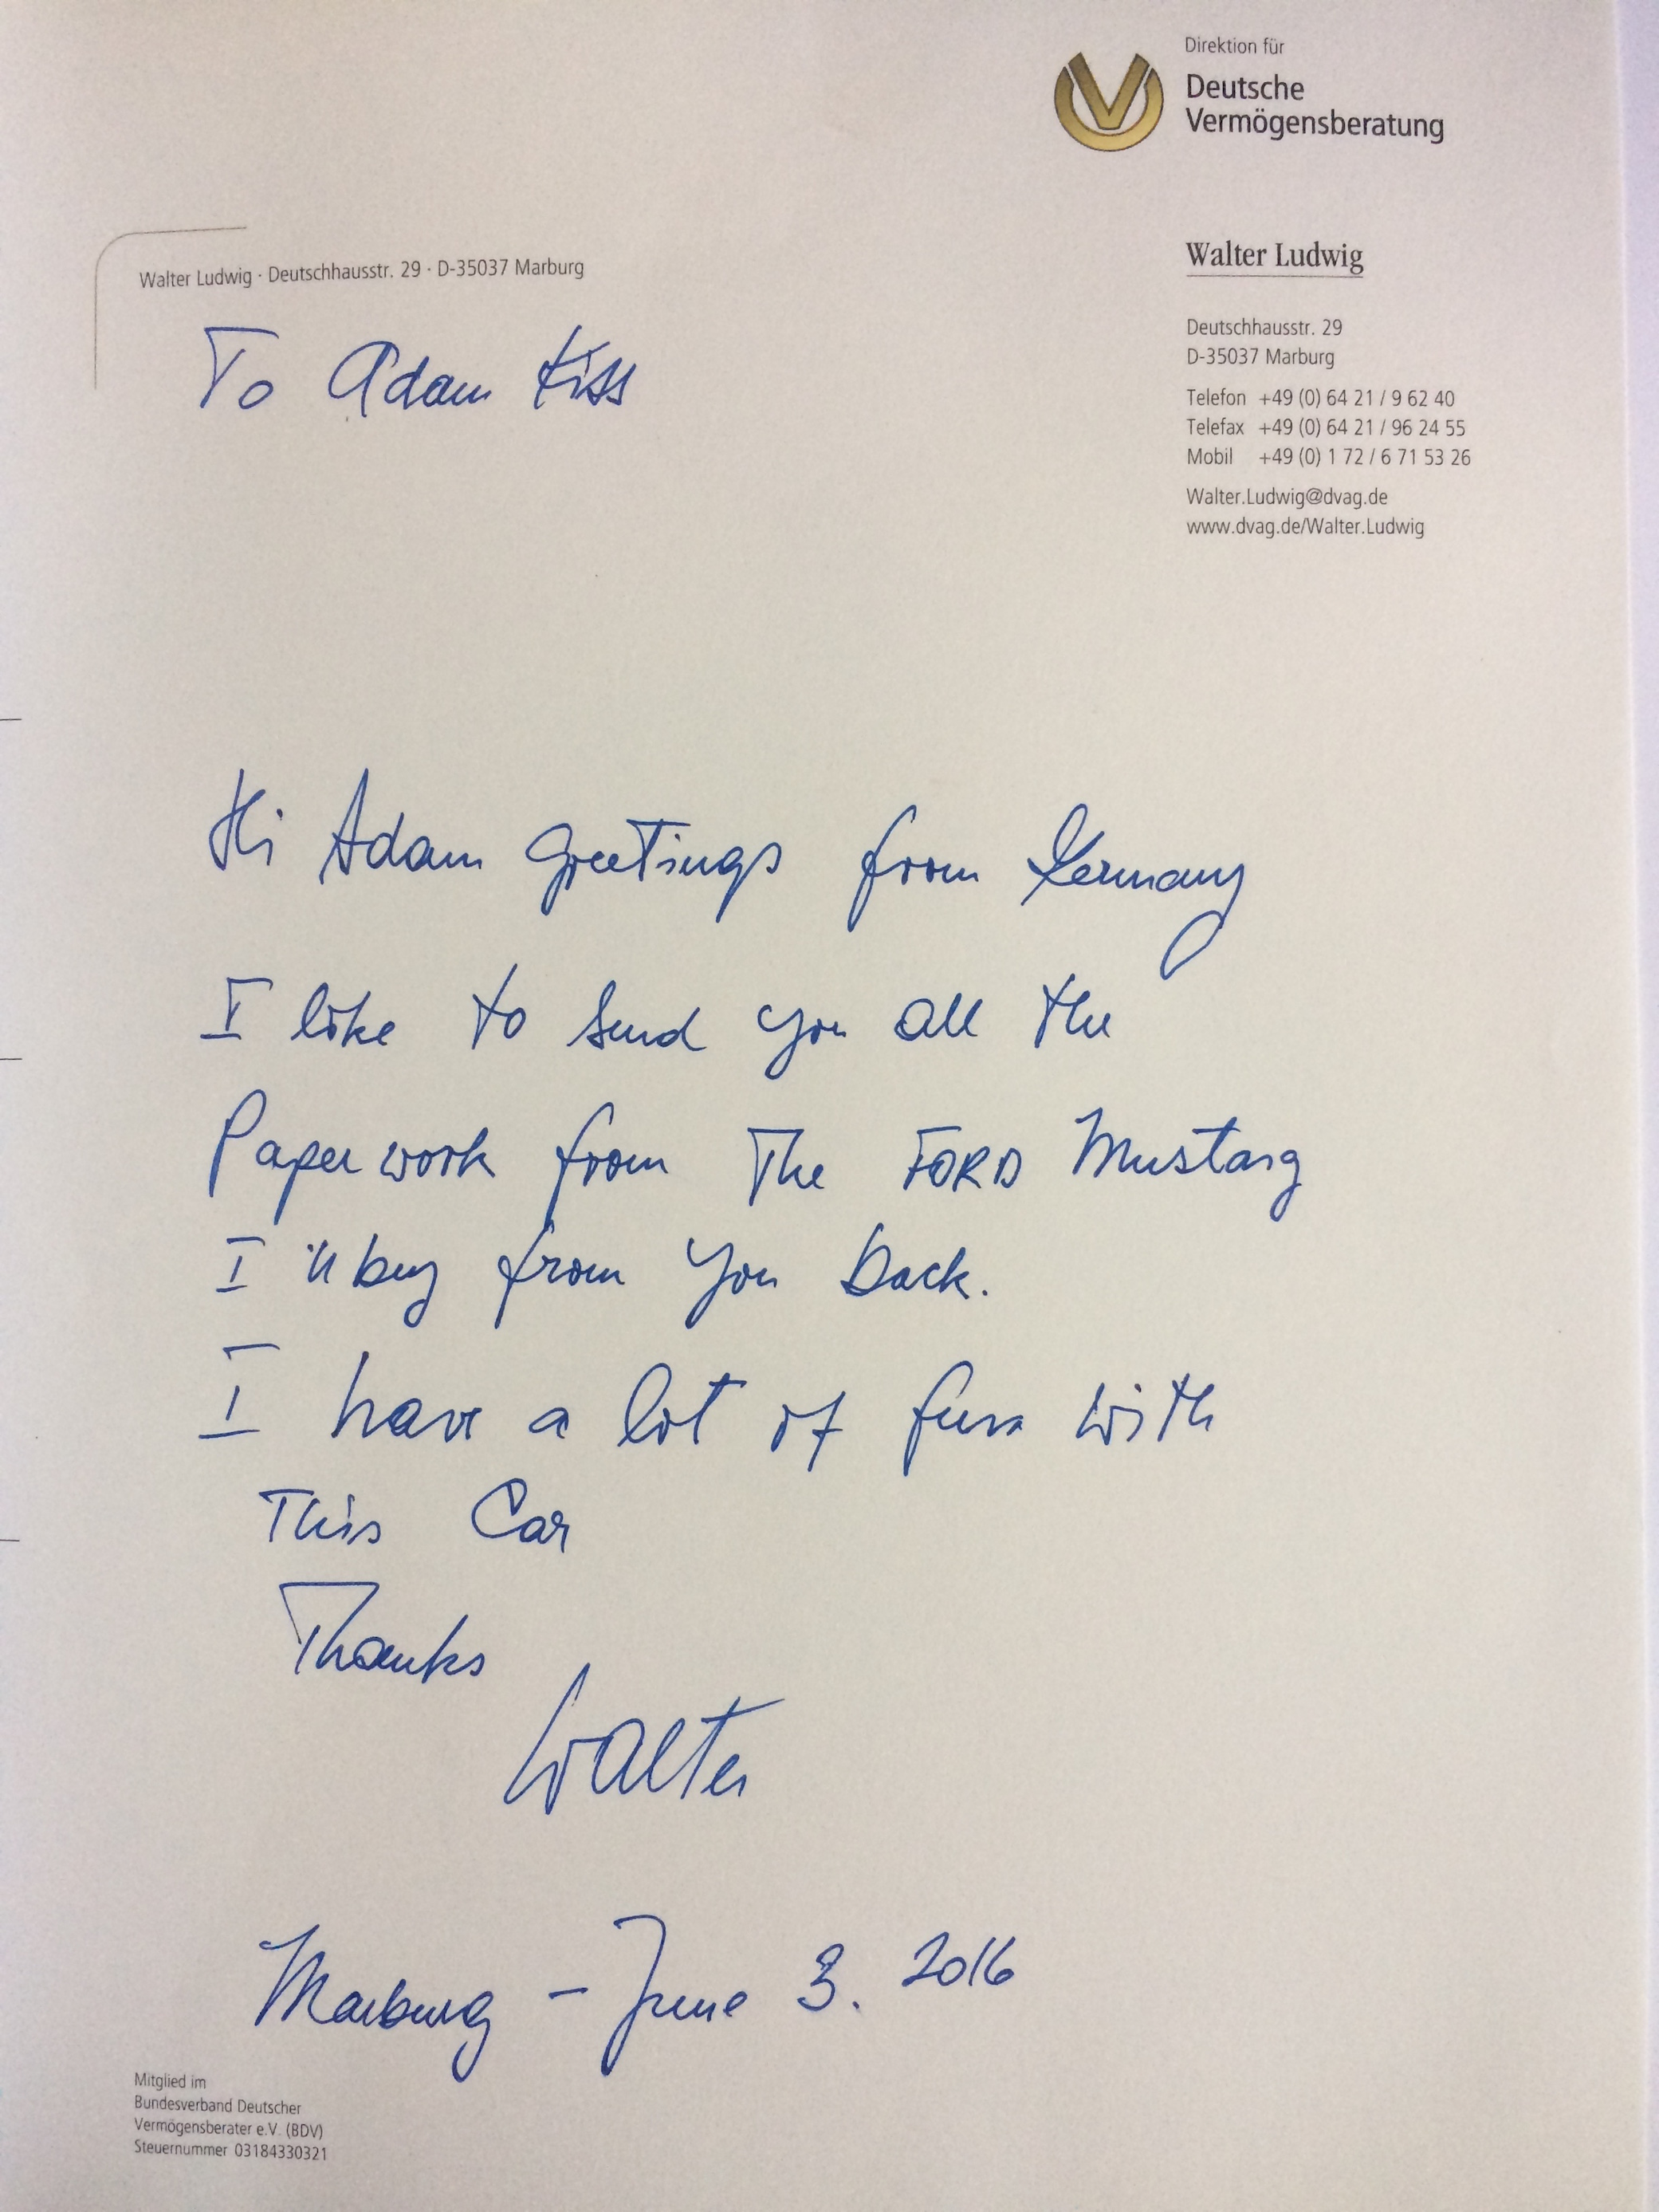 Direktion für
Deutsche
Vermögensberatung
Walter Ludwig · Deutschhausstr. 29 · D-35037 Marburg
Walter Ludwig
Deutschhausstr. 29
D-35037 Marburg
Telefon +49 (0) 64 21 / 9 62 40
Telefax +49 (0) 64 21 / 96 24 55
Mobil +49 (0) 1 72 / 6 71 53 26
Walter.Ludwig@dvag.de
www.dvag.de/Walter.Ludwig
To Adam Kiss
Hi Adam Greetings from Germany
I like to send you all the
Paperwork from The FORD Mustang
I buy from you back.
I have a lot of with
This Car
Thanks
Walter
Marburg – June 3. 2016
Mitglied im
Bundesverband Deutscher
Vermögensberater e.V. (BDV)
Steuernummer 03184330321